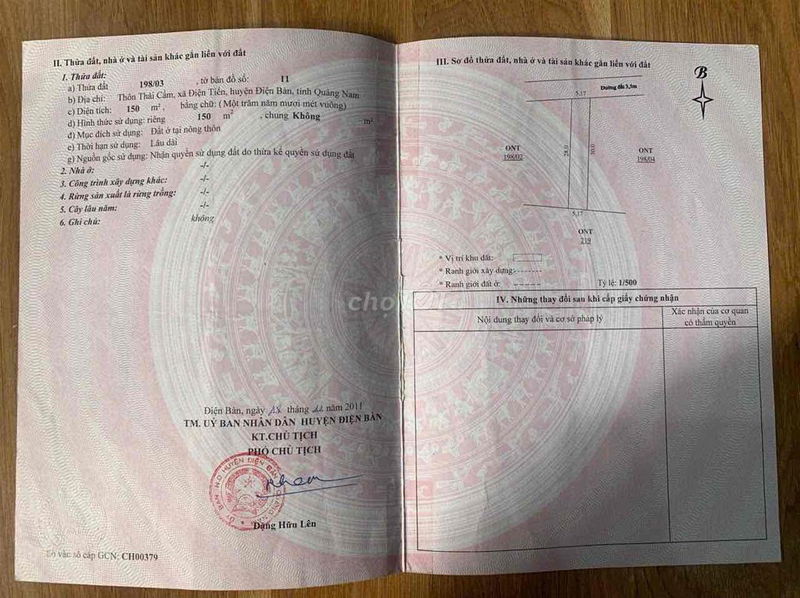 II. Thửa đất, nhà ở và tài sản khác gắn liền với đất
1. Thửa đất:
a) Thửa đất 198/03 , tờ bản đồ số: 11
b) Địa chỉ: Thôn Thái Cẩm, xã Điện Tiến, huyện Điện Bàn, tỉnh Quảng Nam
c) Diện tích: 150 m², bằng chữ: ( Một trăm năm mươi mét vuông)
d) Hình thức sử dụng: riêng 150 m², chung Không m²
đ) Mục đích sử dụng: Đất ở tại nông thôn
e) Thời hạn sử dụng: Lâu dài
g) Nguồn gốc sử dụng: Nhận quyền sử dụng đất do thừa kế quyền sử dụng đất
2. Nhà ở: -/-
3. Công trình xây dựng khác: -/-
4. Rừng sản xuất là rừng trồng: -/-
5. Cây lâu năm: -/-
6. Ghi chú: không
Điện Bàn, ngày tháng năm 2011
TM. UỶ BAN NHÂN DÂN HUYỆN ĐIỆN BÀN
KT.CHỦ TỊCH
PHÓ CHỦ TỊCH
Đặng Hữu Lên
Số vào sổ cấp GCN: CH00379
III. Sơ đồ thửa đất, nhà ở và tài sản khác gắn liền với đất
B
Đường đất 3,5m
5,17
ONT
198/02
ONT
198/04
5,17
ONT
219
* Vị trí khu đất:
* Ranh giới xây dựng:
* Ranh giới đất ở:
Tỷ lệ: 1/500
IV. Những thay đổi sau khi cấp giấy chứng nhận
Nội dung thay đổi và cơ sở pháp lý
Xác nhận của cơ quan
có thẩm quyền